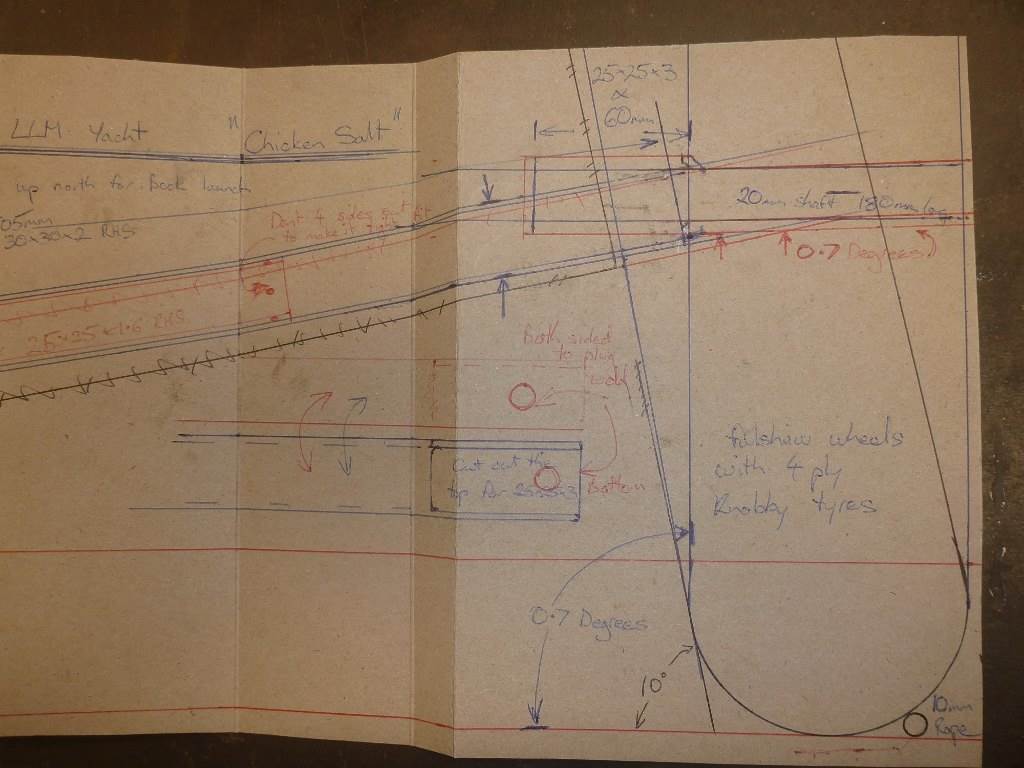 LLM Yacht "Chicken Salt"
up north for Book launch
05mm
30x30x2 RHS
Dent 4 sides
to make it tight
25x25x1.6 RHS
25x25x3
60mm
20mm shaft 180mm long
0.7 Degrees
Both sides
to plug
weld
Cut out the
top for 25x25x3
Bottom
wheels
with 4 ply
Knobby tyres
0.7 Degrees
10°
10mm
Rope